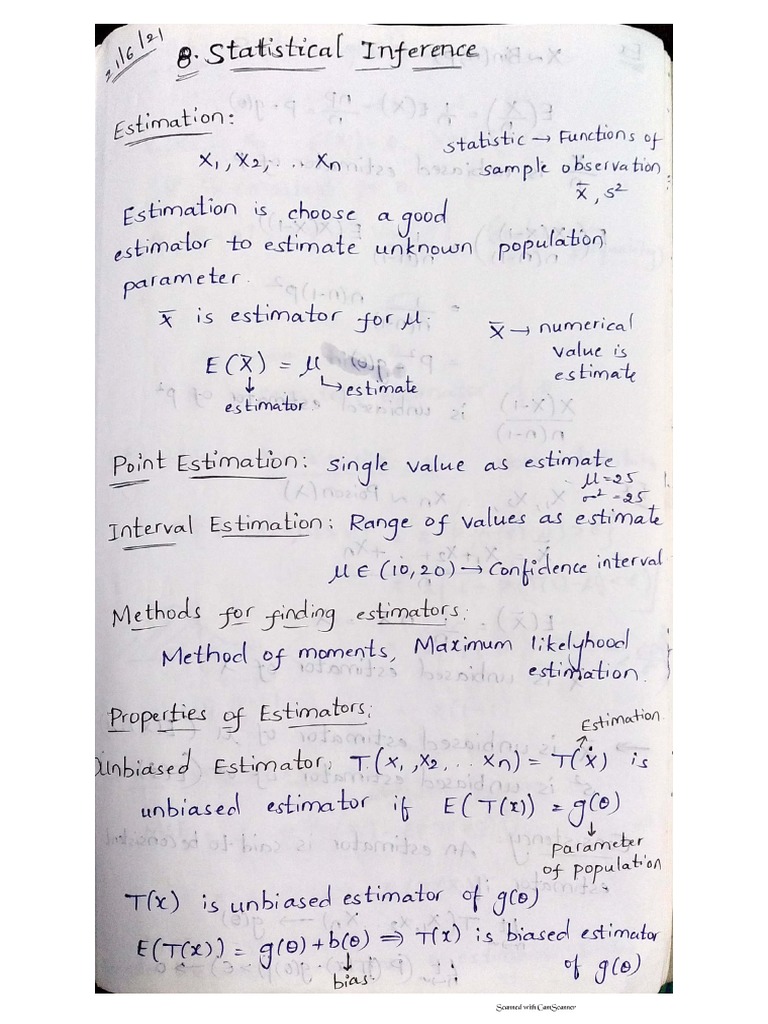 21/6/21
8. Statistical Inference
Estimation:
X₁, X₂, .. Xn
statistic → Functions of
sample observation
x̄, s²
Estimation is choose a good
estimator to estimate unknown population
parameter.
x̄ is estimator for μ.
E(X̄) = μ
↓ estimator
↳ estimate
x̄ → numerical
value is
estimate
Point Estimation: single value as estimate
μ=25
σ²=25
Interval Estimation: Range of values as estimate
μ ∈ (10,20) → Confidence interval
Methods for finding estimators:
Method of moments, Maximum likelyhood
estimation.
Properties of Estimators:
Estimation
Unbiased Estimator: T(x₁, x₂, .. xn) = T(x) is
unbiased estimator if E(T(x)) = g(θ)
↓
parameter
of population
T(x) is unbiased estimator of g(θ)
E(T(x)) = g(θ) + b(θ) ⇒ T(x) is biased estimator
↓
bias.
of g(θ)
Scanned with CamScanner